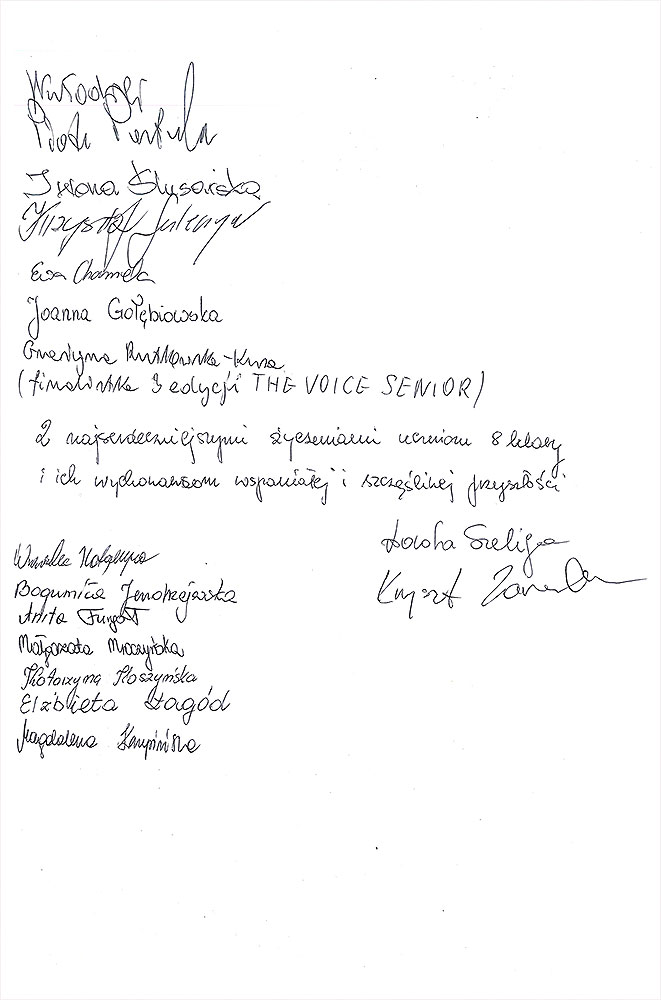 Piotr
Iwona Ślusarska
Krzysztof
Ewa Chamela
Joanna Gołębiowska
Grażyna Rutkowska-Kusa
(finalistka 3 edycji THE VOICE SENIOR)
Z najserdeczniejszymi życzeniami uczniom 8 klasy
i ich wychowawcom wspaniałej i szczęśliwej przyszłości
Dorota Szeliga
Krzyszt
Bogumiła Jendrzejewska
Anita
Małgorzata Mroczyńska
Katarzyna Płoszyńska
Elżbieta Stagód
Magdalena Krupińska